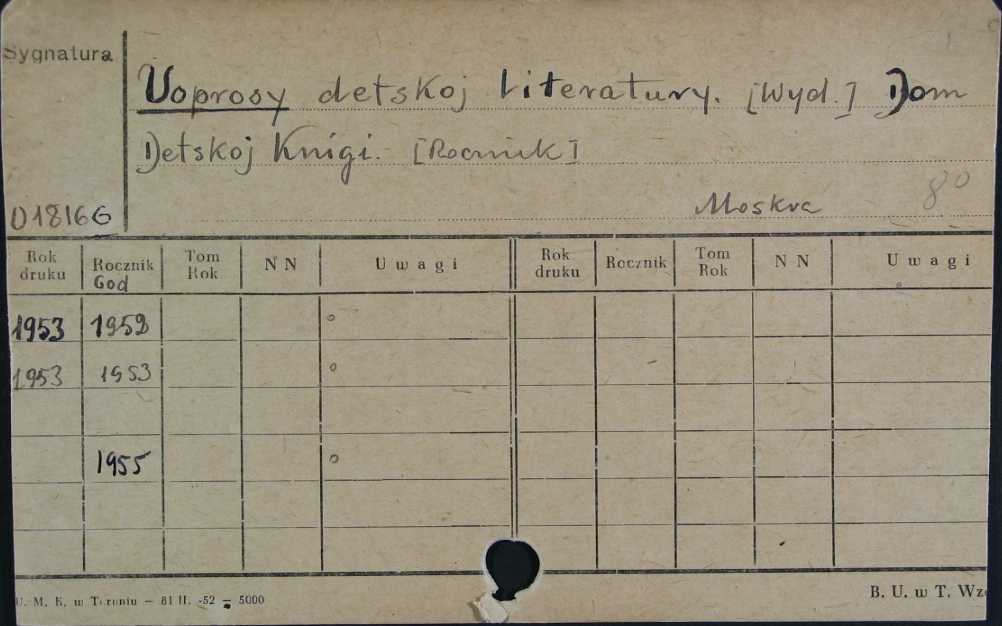 Sygnatura
Voprosy detskoj literatury. [Wyd.] Dom
Detskoj Knigi. [Rocznik]
Moskva 8°
018166
Rok druku Rocznik God Tom Rok N N Uwagi Rok druku Rocznik Tom Rok N N Uwagi
1953 1952 °
1953 1953 °
1955 °
U. M. K. w Toruniu — 81 II. -52 — 5000
B. U. w T. Wz